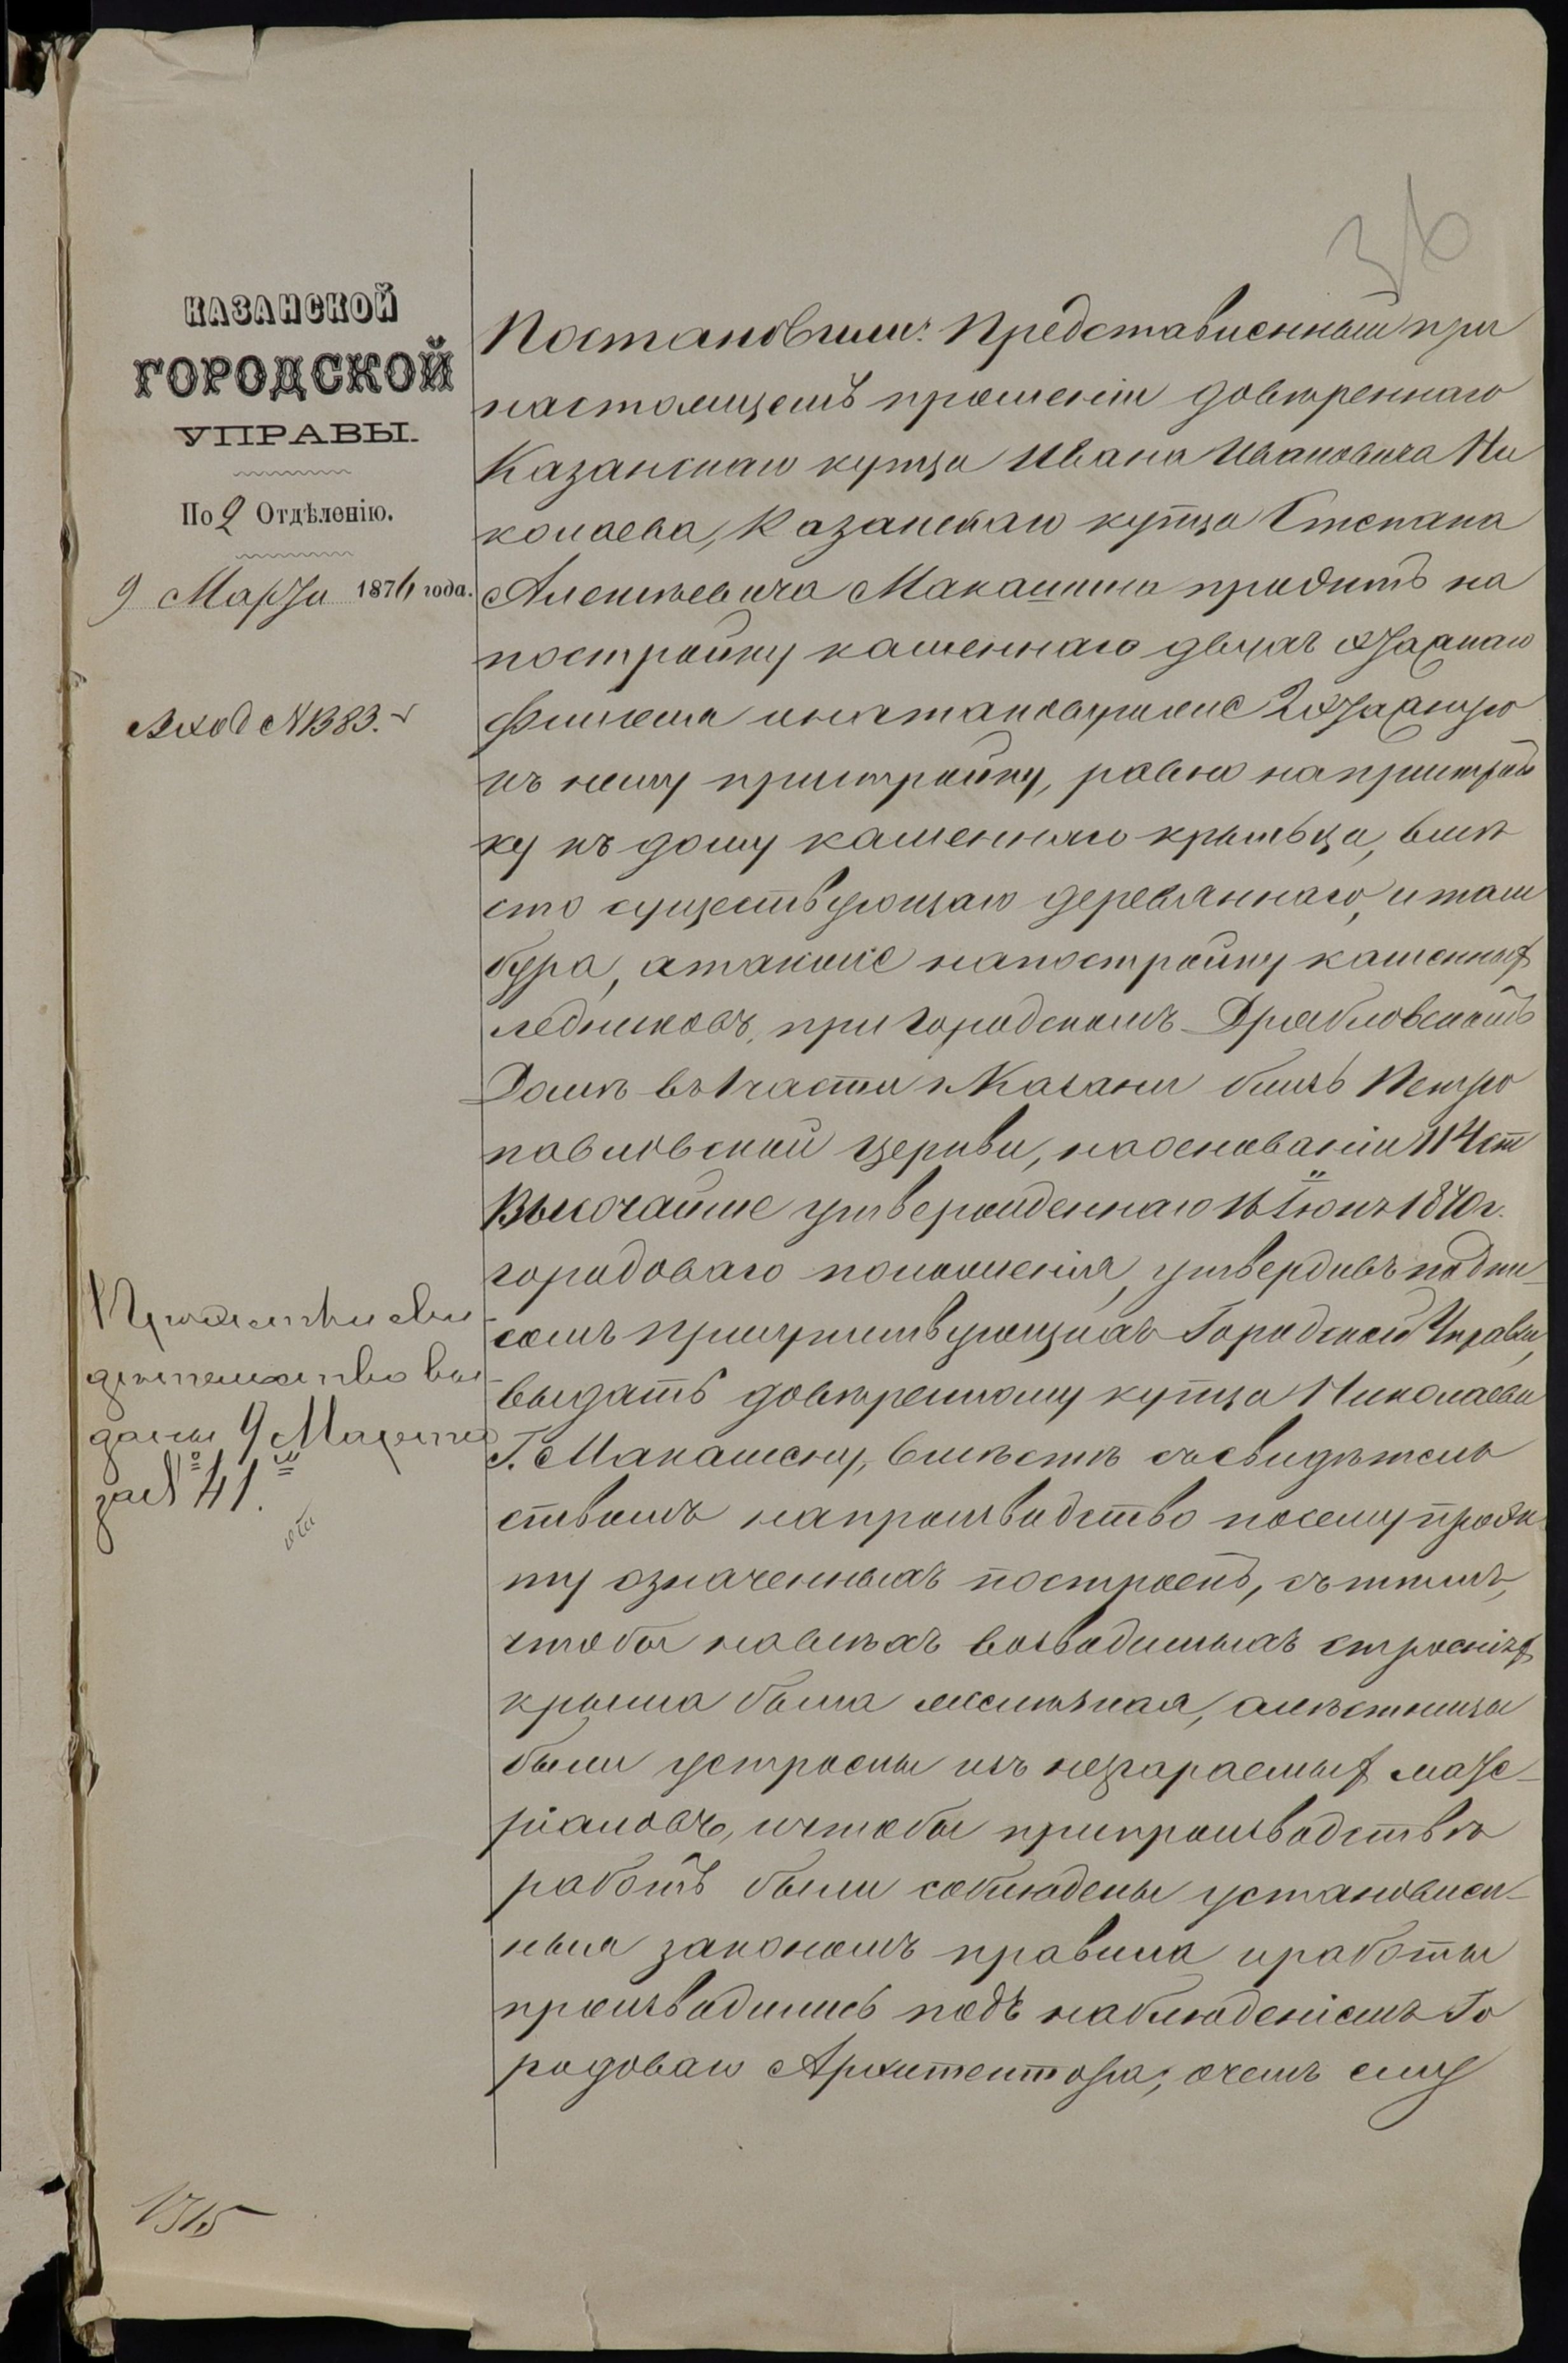 36
КАЗАНСКОЙ
ГОРОДСКОЙ
УПРАВЫ.
По 2 Отдѣленію.
9 Марта 1876 года.
Вход № 1383.
Постановили: Представленный при
настоящемъ прошеніи довѣреннаго
Казанскаго купца Ивана Ивановича Ни
колаева, Казанскаго купца Степана
Алексѣевича Макашина проэктъ на
постройку каменнаго двухъ этажнаго
флигеля и на таковую же 2 этажную
къ нему пристройку, равно на пристрой
ку къ дому каменнаго крыльца, вмѣ
сто существующаго деревяннаго, и там
бура, а также на постройку каменныхъ
ледниковъ, при городскомъ Дрябловскомъ
Домѣ въ 1 части г. Казани близь Петро
павловской церкви, на основаніи 114 ст
Высочайше утвержденнаго 16 Іюня 1870 г.
городоваго положенія, утвердивъ подпи-
сомъ присутствующихъ Городской Управы,
выдать довѣренному купца Николаева
Г. Макашину, вмѣстѣ съ свидѣтель
ствомъ на производство по сему проэк
ту означенныхъ построекъ, съ тѣмъ,
чтобы на всѣхъ возводимыхъ строеніяхъ
крыша была желѣзная, а лѣстницы
были устроены изъ несгараемыхъ мате-
ріаловъ, и чтобы при производствѣ
работъ были соблюдены установлен-
ныя закономъ правила и работы
производились подъ наблюденіемъ Го
родоваго Архитектора; о чемъ ему
Проэктъ и сви-
дѣтельство вы-
даны 9 Марта
за № 41.
1315